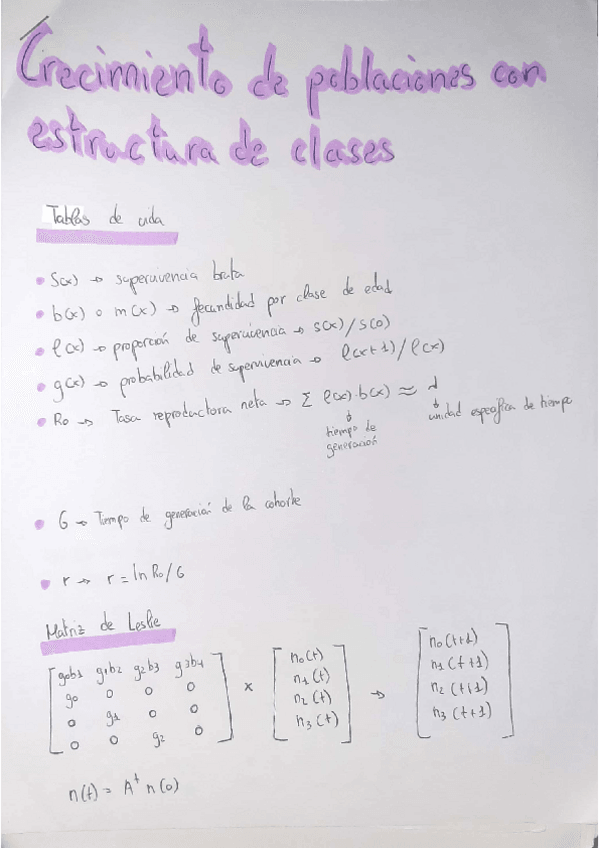 Crecimiento de poblaciones con
estructura de clases
Tablas de vida
• S(x) → supervivencia bruta
• b(x) o m(x) → fecundidad por clase de edad
• l(x) → proporción de supervivencia → s(x)/s(0)
• g(x) → probabilidad de supervivencia → l(x+1)/l(x)
• Ro → Tasa reproductora neta → Σ l(x)·b(x) ≈ λ
↓ ↓
tiempo de generación unidad específica de tiempo
• G → Tiempo de generación de la cohorte
• r → r = ln Ro/G
Matriz de Leslie
g0b1 g1b2 g2b3 g3b4 n0(t) n0(t+1)
g0 0 0 0 n1(t) n1(t+1)
0 g1 0 0 × n2(t) → n2(t+1)
0 0 g2 0 n3(t) n3(t+1)
n(t) = A^t n(0)